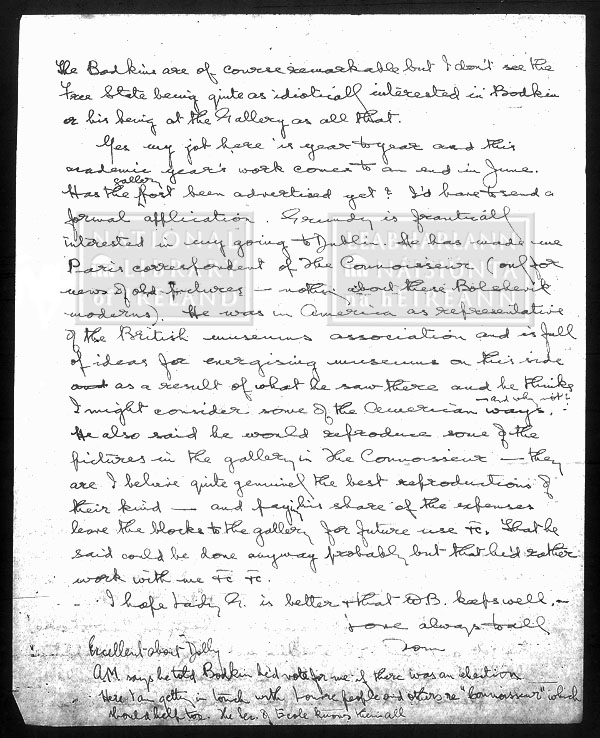 The Bodkins are of course remarkable but I don't see the
Free State being quite as idiotically interested in Bodkin
or his being at the Gallery as all that.
Yes my job here is year to year and this
academic year's work comes to an end in June.
gallery
Has the post been advertised yet? I'd have to send a
formal application. Grundy is frantically
interested in my going to Dublin. He has made me
Paris correspondent of The Connoisseur (only for
news of old pictures – nothin about these Bolshevik
moderns). He was in America as representative
of the British museums association and is full
of ideas for energising museums on this side
and as a result of what he saw there and he thinks
– and why not?
I might consider some of the American ways.
He also said he would reproduce some of the
pictures in the gallery in The Connoisseur – they
are I believe quite genuinely the best reproductions of
their kind – and paying his share of the expenses
leave the blocks to the gallery for future use &c. That he
said could be done anyway probably but that he'd rather
work with me &c &c.
I hope Lady G. is better & that W.B. keeps well. –
Love always to all
Tom
Excellent about Dolly
A.M. says he told Bodkin he'd vote for me if there was an election
Here I am getting in touch with Louvre people and others re "Connoisseur" which
should help too. The Sec. of Ecole knows them all
NATIONAL
LIBRARY
of IRELAND
LEABHARLANN
NÁISIÚNTA
na hÉIREANN